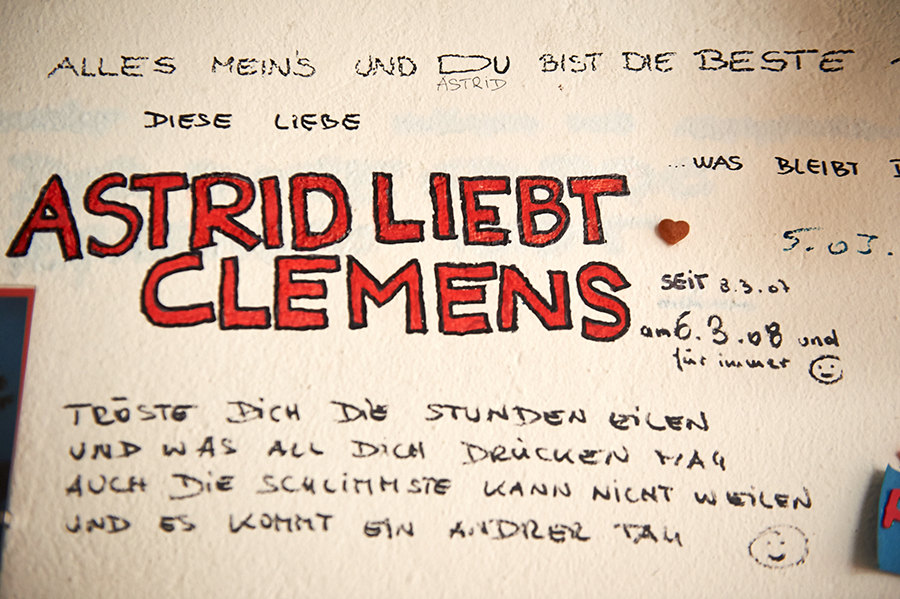 ALLES MEIN'S UND DU BIST DIE BESTE
ASTRID
DIESE LIEBE
...WAS BLEIBT
ASTRID LIEBT
CLEMENS
5.03.
SEIT 3.3.07
am 6.3.08 und
für immer
TRÖSTE DICH DIE STUNDEN EILEN
UND WAS ALL DICH DRÜCKEN MAG
AUCH DIE SCHLIMMSTE KANN NICHT WEILEN
UND ES KOMMT EIN ANDRER TAG